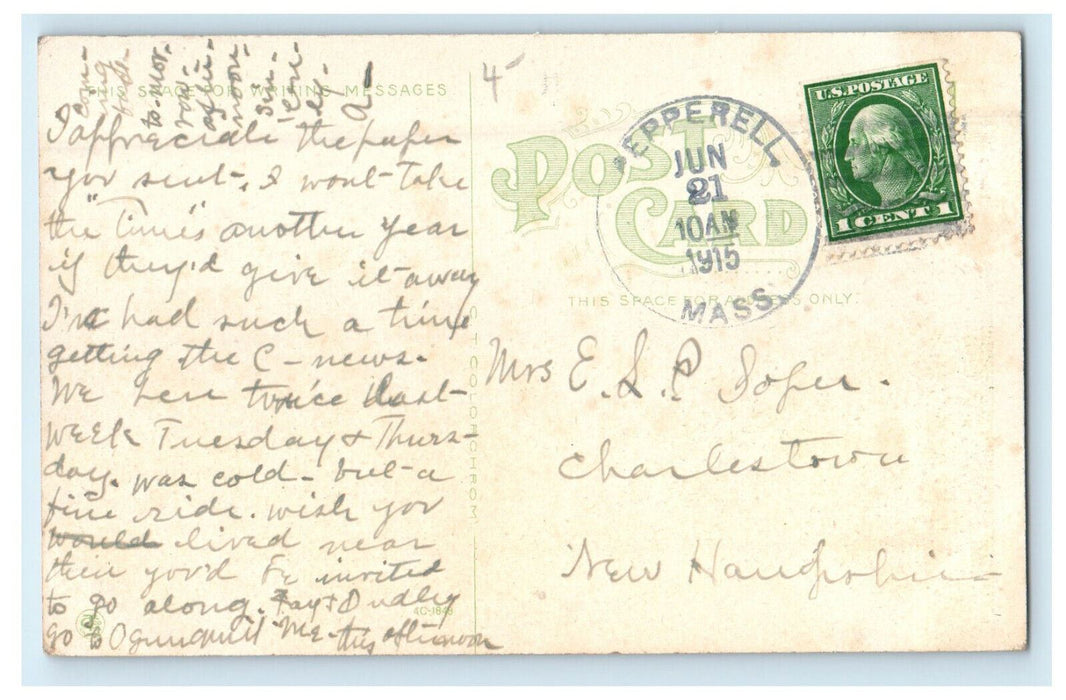 THIS SPACE FOR WRITING MESSAGES
I appreciate the paper
you sent. I wont take
the "Times" another year
if they'd give it away
I've had such a time
getting the C-news.
We here twice last
week Tuesday & Thurs-
day. was cold - but a
fine ride. wish you
would lived near
then you'd be invited
to go along. Fay & Dudley
go to Ogunquit Me. this afternoon
com-
ing
back
to-mor-
row-
after-
noon-
Sin-
cere-
ly-
A
4C-1849
C T COLORCHROM
4-
POST CARD
THIS SPACE FOR ADDRESS ONLY.
PEPPERELL,
JUN
21
10 AM
1915
MASS.
U.S. POSTAGE
1 CENT 1
Mrs E. L. P. Soper.
Charlestown
New Hampshire